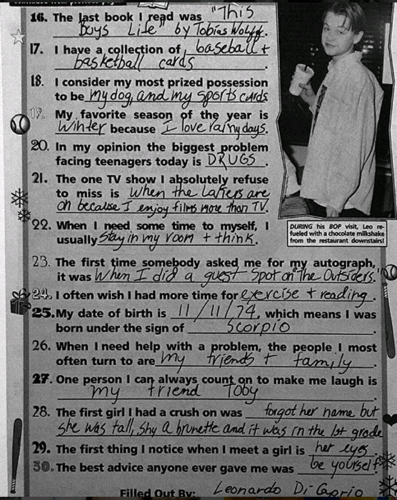 16. The last book I read was "This
Boys Life" by Tobias Wolff.
17. I have a collection of baseball +
basketball cards
18. I consider my most prized possession
to be my dog, and my sports cards
19. My favorite season of the year is
Winter because I love rainy days.
20. In my opinion the biggest problem
facing teenagers today is DRUGS.
21. The one TV show I absolutely refuse
to miss is when the Lakers are
on because I enjoy films more than TV.
22. When I need some time to myself, I
usually stay in my room + think.
23. The first time somebody asked me for my autograph,
it was when I did a guest spot on The Outsiders.
24. I often wish I had more time for exercise + reading.
25. My date of birth is 11/11/74, which means I was
born under the sign of Scorpio.
26. When I need help with a problem, the people I most
often turn to are my friends + family
27. One person I can always count on to make me laugh is
my friend Toby
28. The first girl I had a crush on was forgot her name but
she was tall, shy a brunette and it was in the 1st grade
29. The first thing I notice when I meet a girl is her eyes.
30. The best advice anyone ever gave me was be yourself
Filled Out By: Leonardo Di Caprio
DURING his BOP visit, Leo re-
fueled with a chocolate milkshake
from the restaurant downstairs!